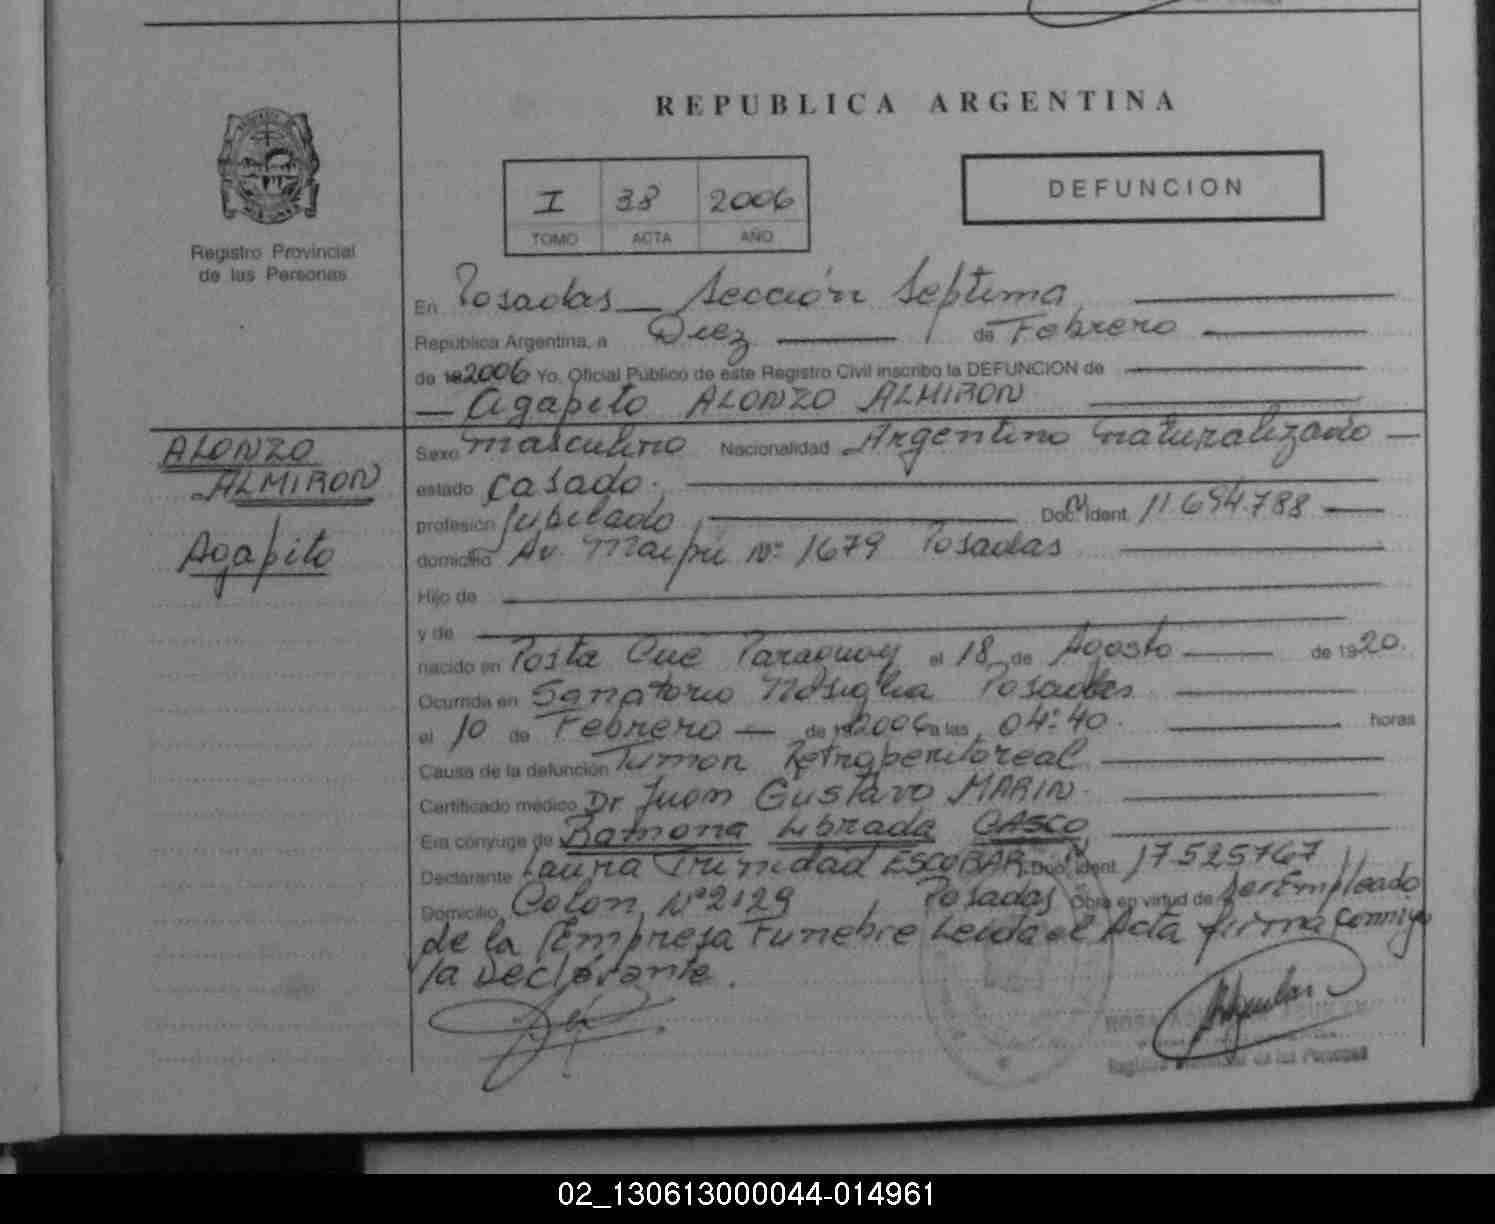 REPUBLICA ARGENTINA
I 38 2006
TOMO ACTA AÑO
DEFUNCION
Registro Provincial
de las Personas
En Posadas — Sección Septima
República Argentina, a Diez de Febrero
de 2006 Yo, Oficial Público de este Registro Civil inscribo la DEFUNCION de
— Agapito ALONZO ALMIRON
ALONZO
ALMIRON
Agapito
Sexo masculino Nacionalidad Argentino naturalizado —
estado casado.
profesión Jubilado Doc. Ident. 11.694.788
domicilio Av. Maipú Nº 1679 Posadas
Hijo de
y de
nacido en Posta Cué Paraguay el 18 de Agosto de 1920.
Ocurrida en Sanatorio Nosiglia Posadas
el 10 de Febrero — de 2006 a las 04:40. horas
Causa de la defunción Tumor Retroperitoreal
Certificado médico Dr Juan Gustavo MARIN.
Era cónyuge de Ramona Librada GASCO
Declarante Laura Trinidad ESCOBAR. Doc. Ident. 17525767
Domicilio Colon Nº 2129 Posadas Obra en virtud de ser Empleado
de la Empresa Funebre Leida el Acta firma conmigo
la Declarante.
Registro Provincial de las Personas
02_130613000044-014961